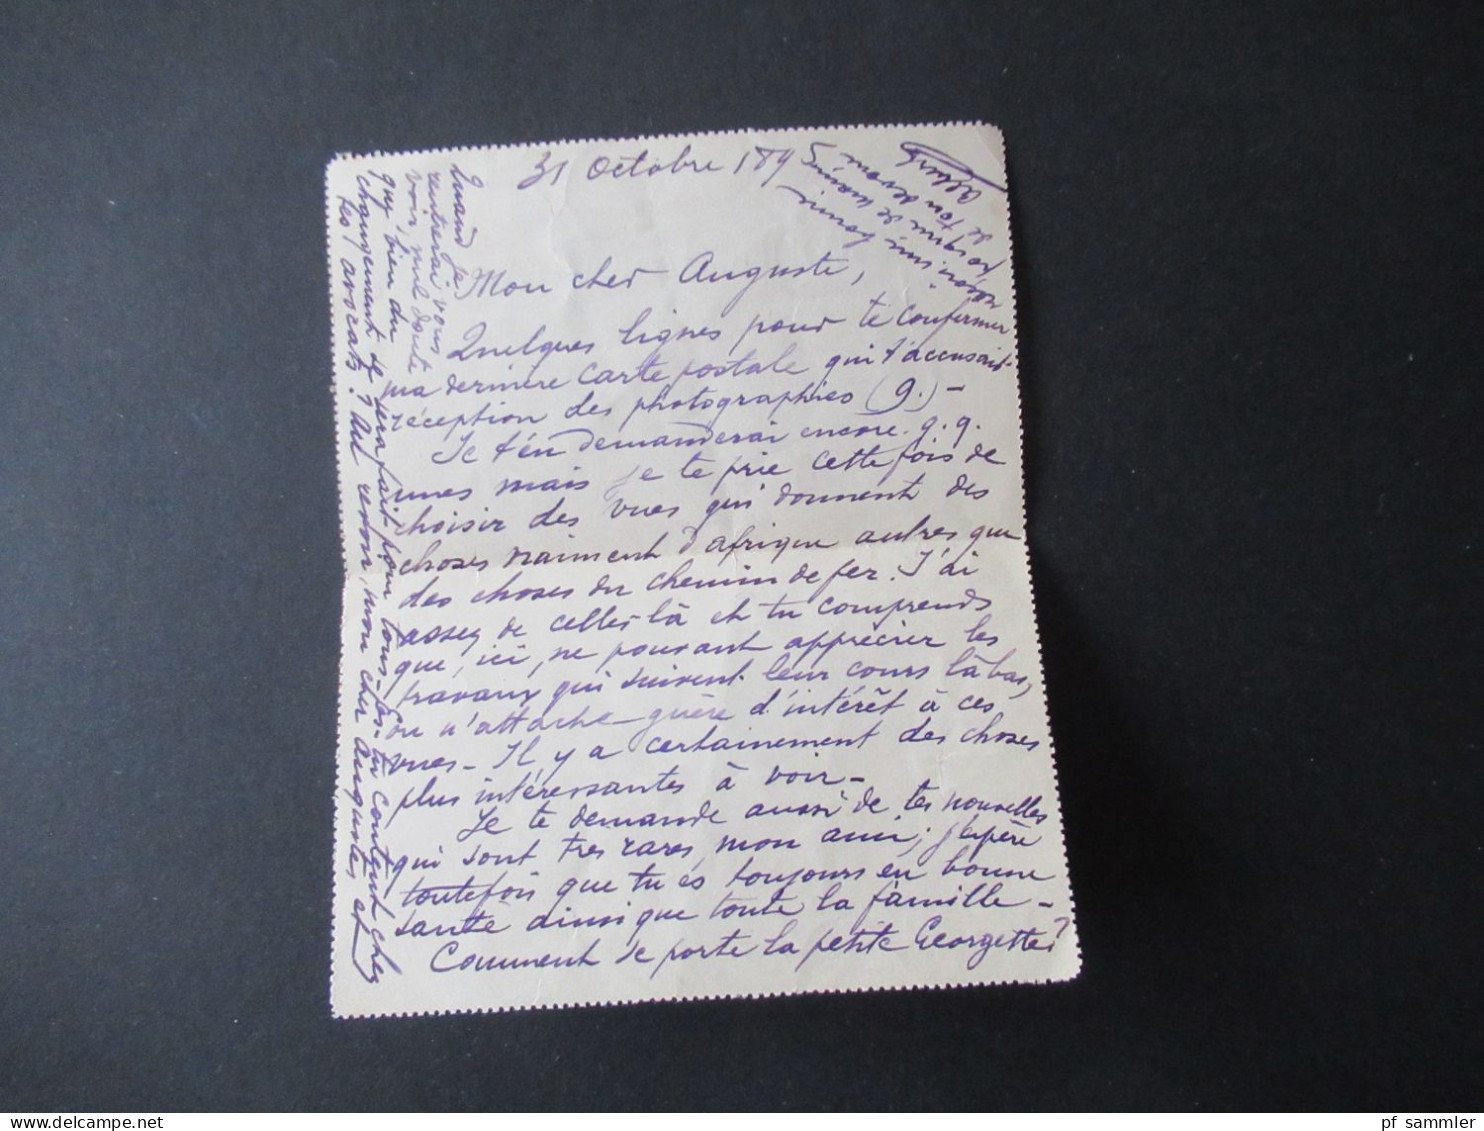 31 Octobre 1895
Mon cher Auguste,
Quelques lignes pour te confirmer
ma dernière carte postale qui t'accusait
réception des photographies (9.) –
Je t'en demanderai encore q.q.
unes mais je te prie cette fois de
choisir des vues qui donnent des
choses vraiment d'afrique autres que
des choses du chemin de fer. J'ai
assez de celles-là et tu comprends
que, ici, ne pouvant apprécier les
travaux qui suivent leur cours là bas,
on n'attache guère d'intérêt à ces
vues – Il y a certainement des choses
plus intéressantes à voir –
Je te demande aussi de tes nouvelles
qui sont très rares, mon ami; j'espère
toutefois que tu es toujours en bonne
santé ainsi que toute la famille –
Comment se porte la petite Georgette?
Quand je
rentrerai vous
voir, nul doute
que, bien du
changement se sera fait pour tous. Es-tu content chez
les avocats? Au revoir, mon cher Auguste, et
poignée de mains
de ton dévoué
Albert
pf sammler